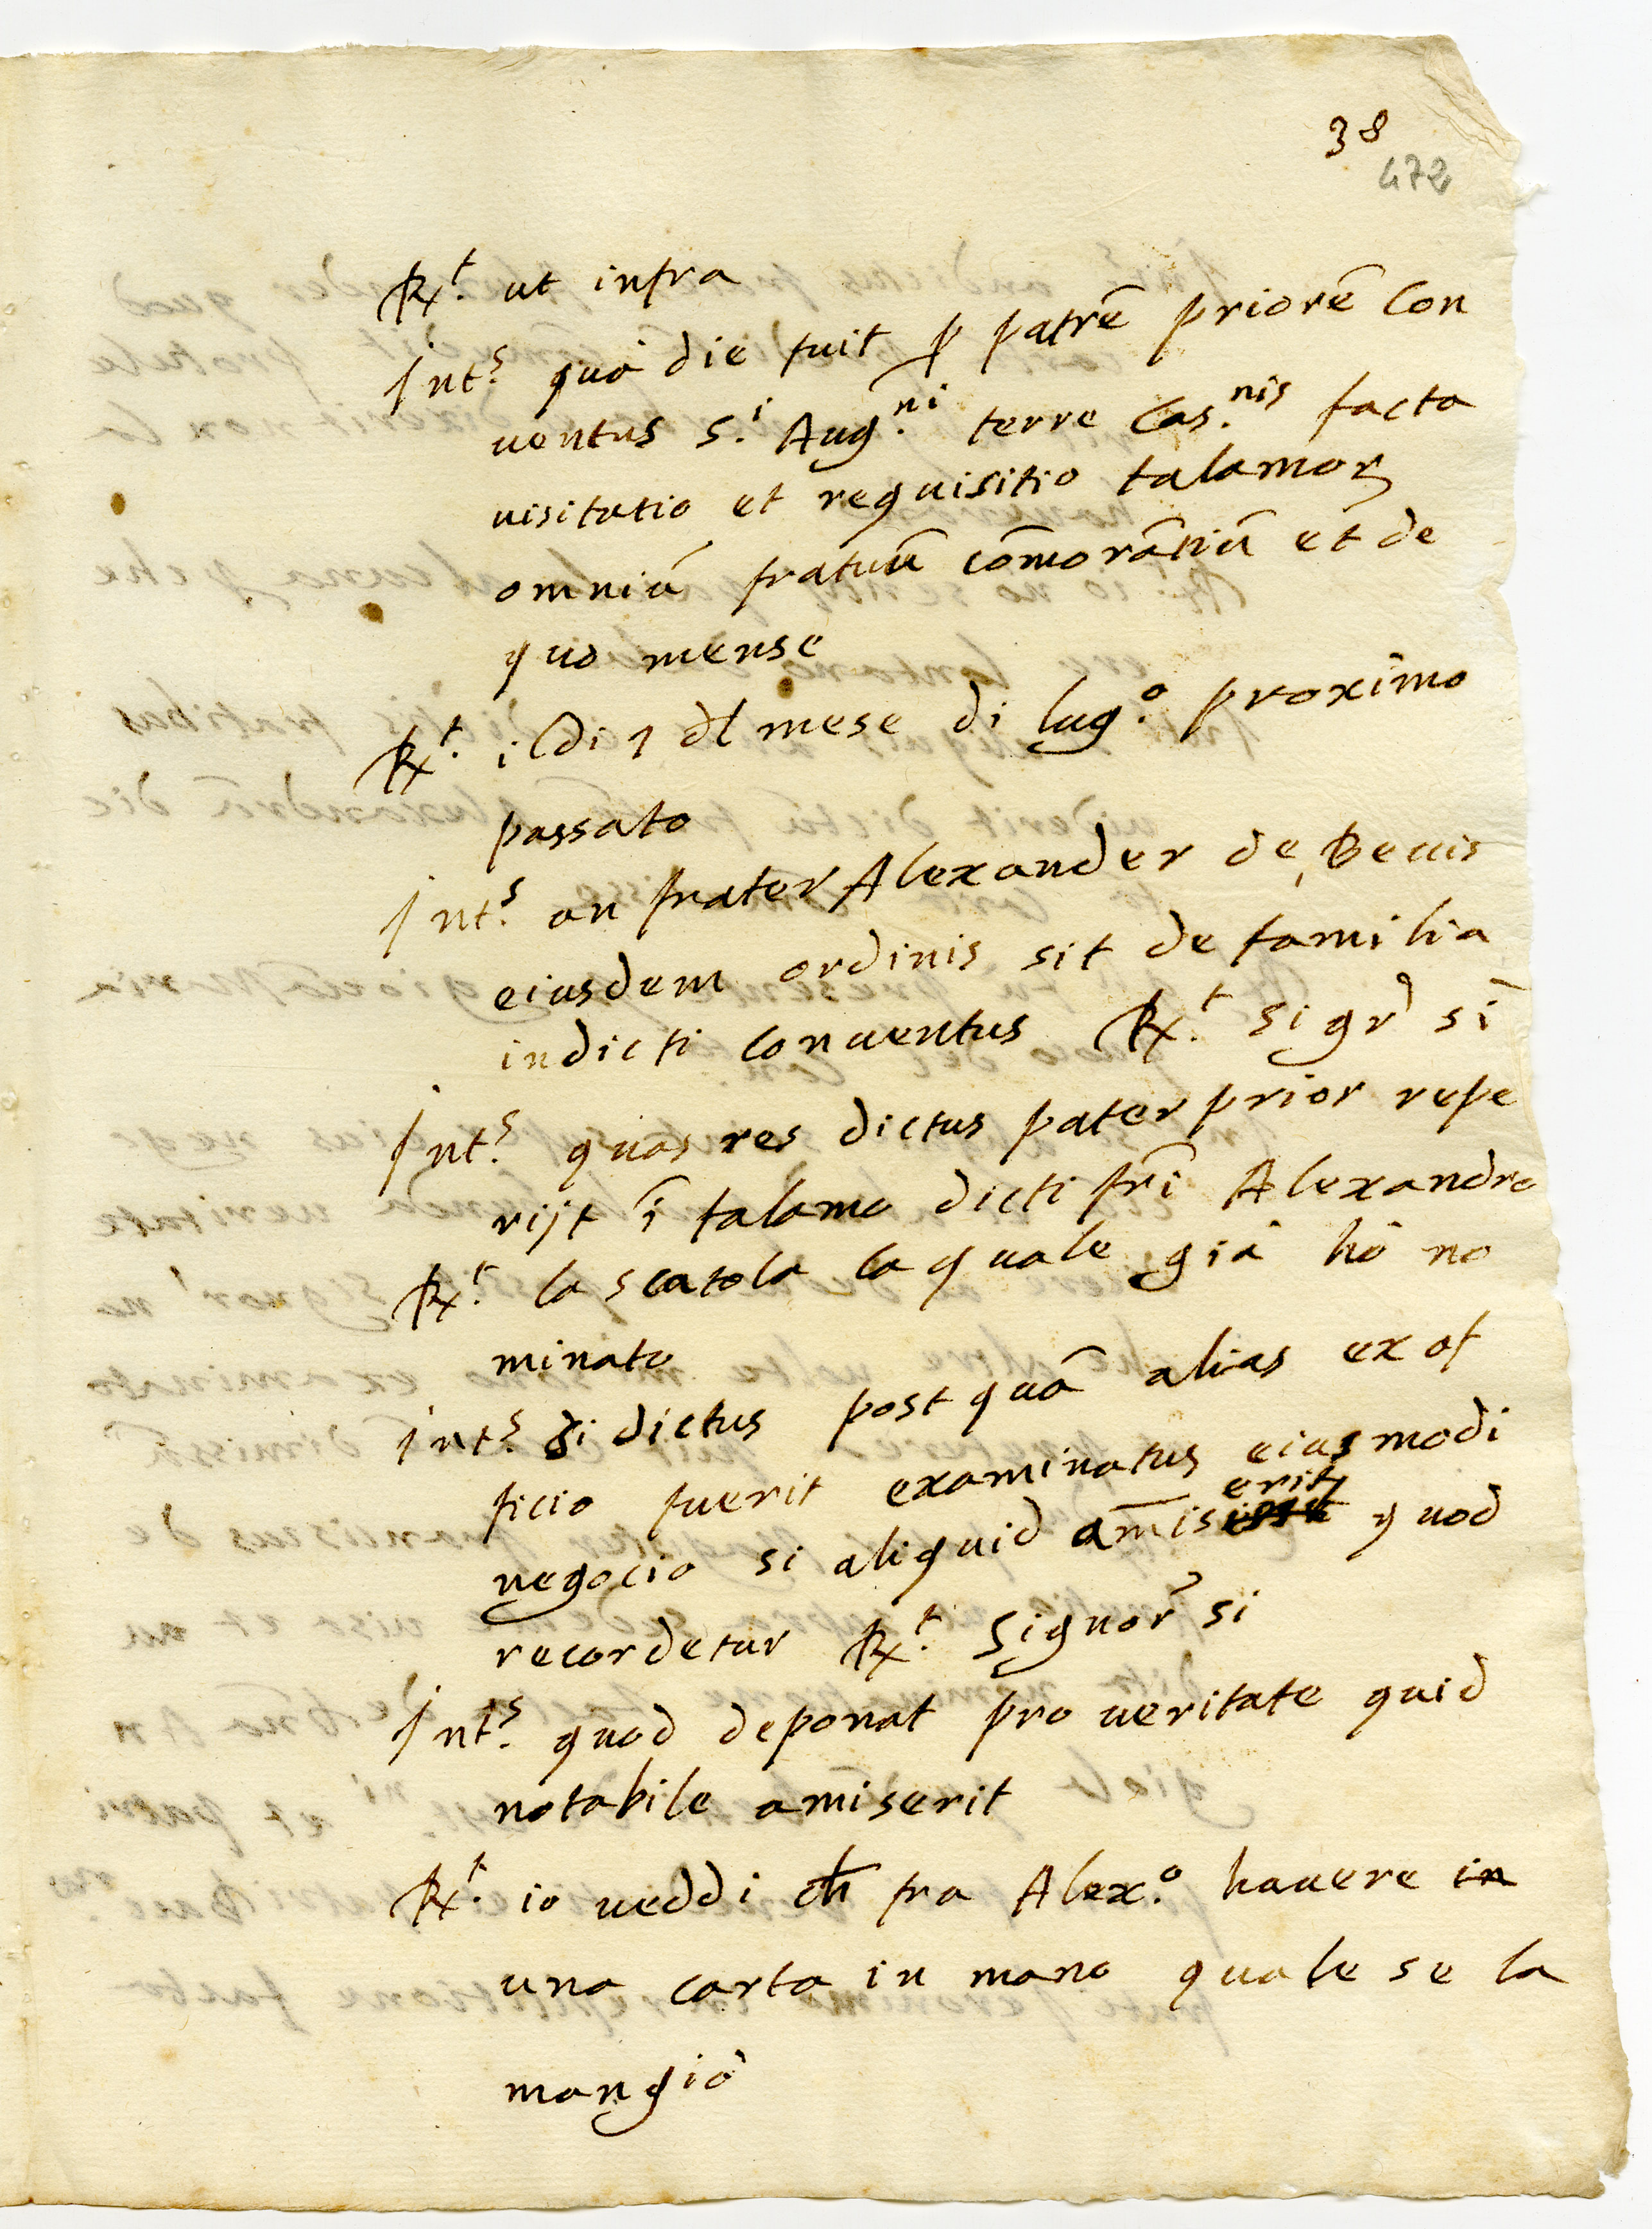 38
472
Rx.t ut infra
Int.s qua die fuit p patrē priorē Con
uentus S.i Aug.ni terre Cas.nis facta
uisitatio et requisitio talamoꝝ
omniū fratuū cōmorātiū et de
quo mense
Rx.t il di 1 dl mese di lug.o proximo
passato
Int.s an frater Alexander de Beuis
eiusdem ordinis sit de familia
in dicti conuentus Rx.t sigr si
Int.s quas res dictus pater prior repe
rijt ī talamo dicti fri Alexandro
Rx.t la scatola la quale già hò no
minato
Int.s di dictus post quā alias ex of
ficio fuerit examinatus eiusmodi
erit
negocio si aliquid am̄is quod
recordetur Rx.t Signor si
Int.s quod deponat pro ueritate quid
notabile amiserit
Rx.t io ueddi ch fra Alex.o hauere in
una carta in mano quale se la
mangiò